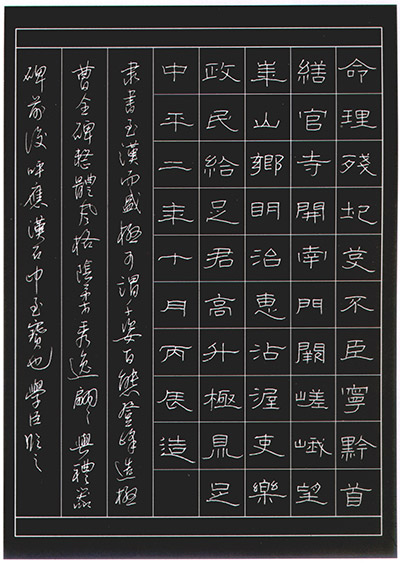 命理殘圮芟不臣寧黔首
繕官寺開南門闕嵯峨望
崋山鄉明治惠沾渥吏樂
政民給足君高升極鼎足
中平二年十月丙辰造
隶書至漢而盛極可謂千姿百態登峰造極
曹全碑整體風格陰柔秀逸翩々與禮器
碑前後呼應漢石中至寶也學臣臨之